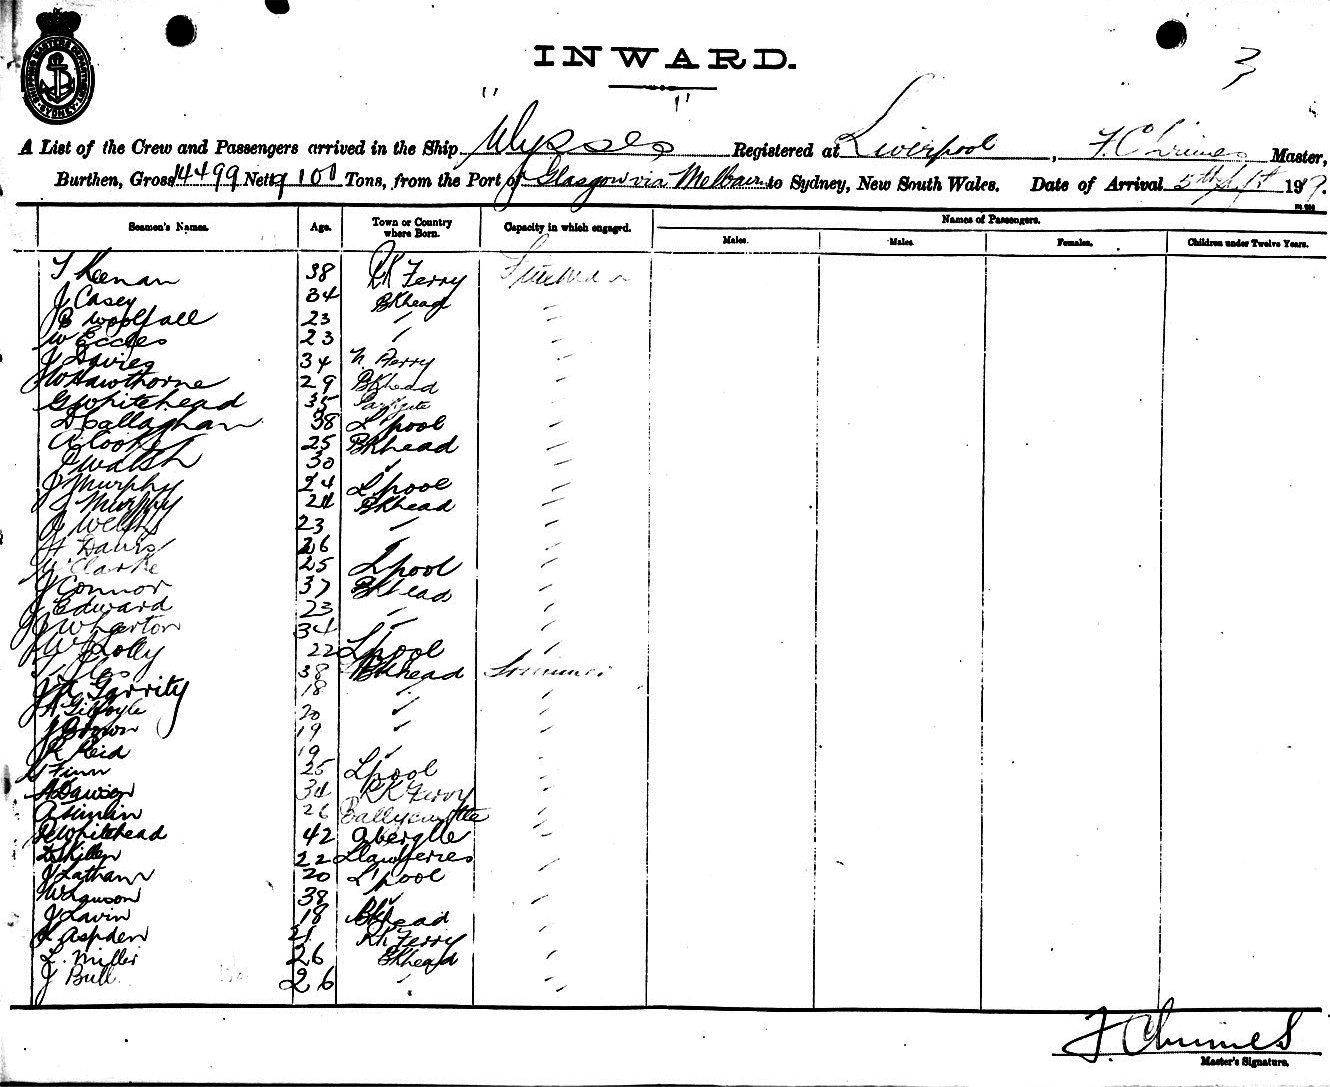 SHIPPING MASTERS DEPARTMENT SYDNEY
3
INWARD.
A List of the Crew and Passengers arrived in the Ship "Ulysses" Registered at Liverpool, F. Chrimes Master,
Burthen, Gross 14499 Nett 9100 Tons, from the Port of Glasgow via Melb to Sydney, New South Wales. Date of Arrival 5th Sept 19
Seamen's Names. Age. Town or Country where Born. Capacity in which engaged. Names of Passengers.
Males. Males. Females. Children under Twelve Years.
T Keenan 38 RK Ferry Fireman
J Casey 34 BKhead "
B Woolfall 23 " "
W Eccles 23 " "
J Davies 34 N. Ferry "
W Hawthorne 29 BKhead "
G Whitehead 35 "
D Callaghan 38 L'pool "
A Cooke 25 BKhead "
J Walsh 30 " "
J Murphy 24 L'pool "
J Murphy 24 BKhead "
J Welsh 23 " "
H Davis 26 " "
W Clarke 25 L'pool "
J Connor 37 BKhead "
J Edward 23 " "
J Wharton 34 " "
W 22 L'pool "
38 BKhead Trimmer
J A Garrity 18 " "
A Gilfoyle 20 " "
J Brown 19 " "
R Reid 19 " "
G Finn 25 L'pool "
A Dawson 34 RK Ferry "
A 26 "
R Whitehead 42 Abergele "
22 "
J Latham 20 L'pool "
38 " "
J Lavin 18 BKhead "
Aspden 21 RK Ferry "
L. Miller 26 BKhead "
J Bull 26 " "
F. Chrimes
Master's Signature.